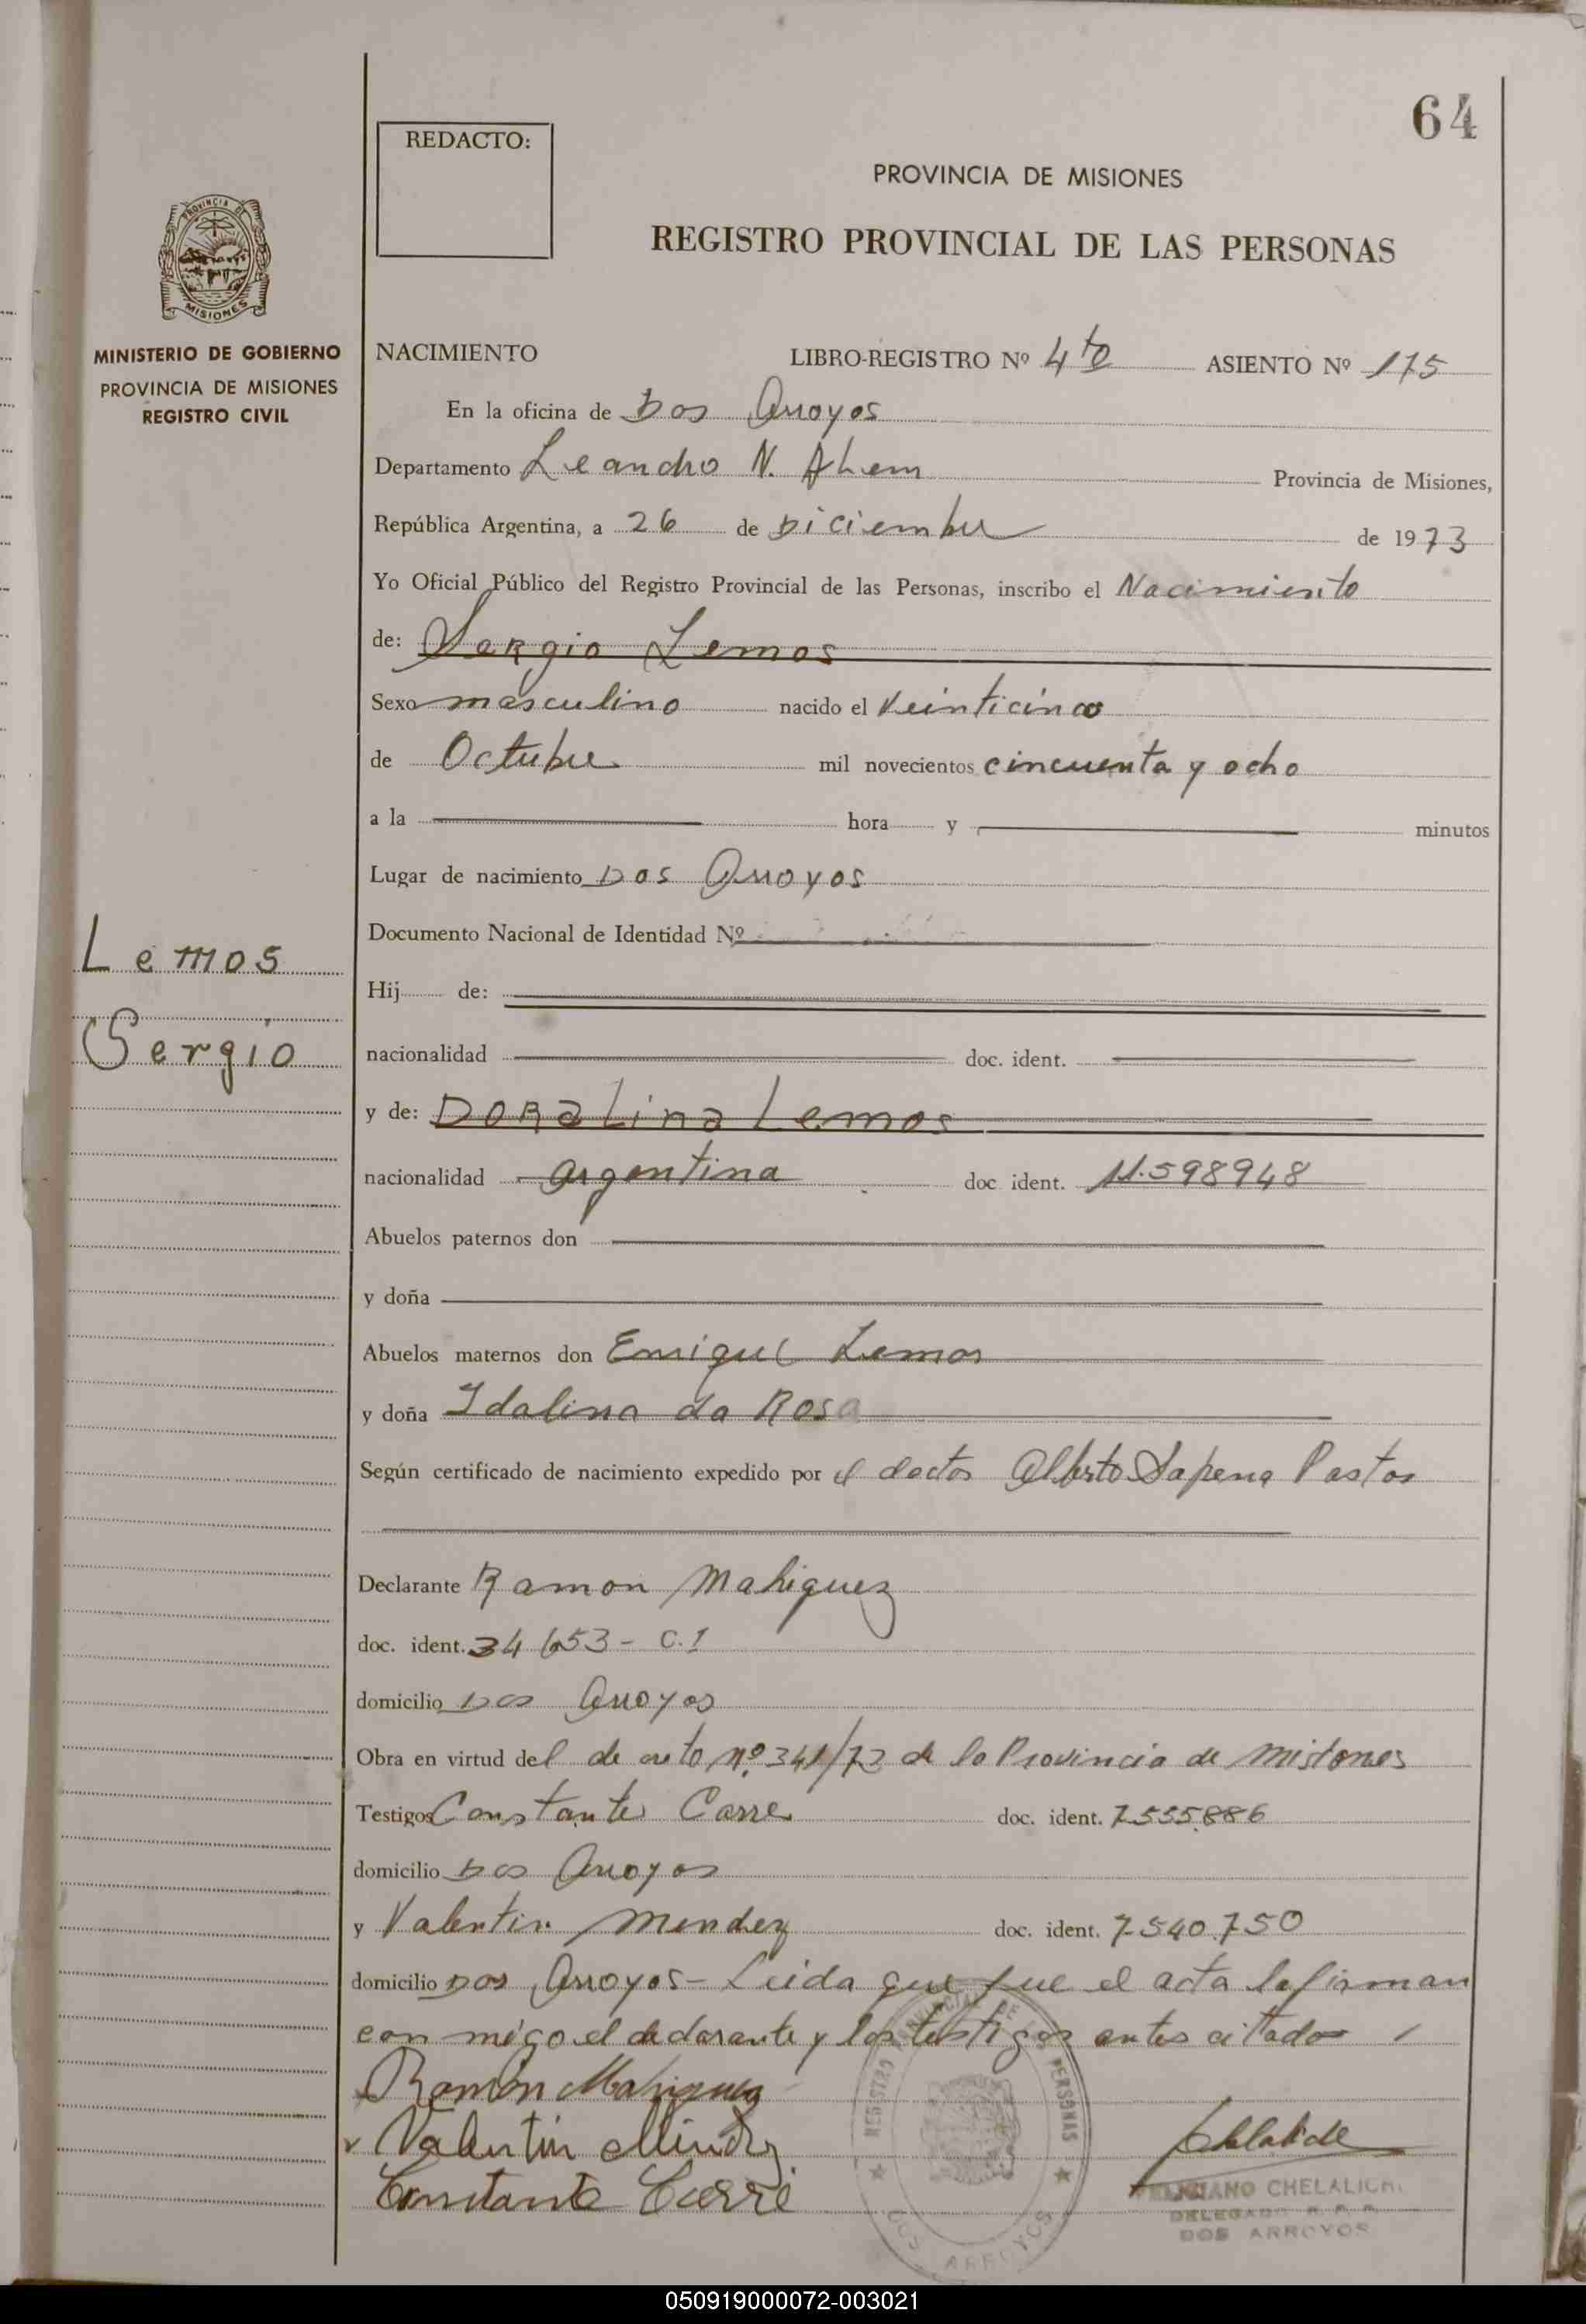 64
REDACTO:
PROVINCIA DE MISIONES
REGISTRO PROVINCIAL DE LAS PERSONAS
PROVINCIA DE
MISIONES
MINISTERIO DE GOBIERNO
PROVINCIA DE MISIONES
REGISTRO CIVIL
NACIMIENTO LIBRO-REGISTRO Nº 4to ASIENTO Nº 175
En la oficina de Dos Arroyos
Departamento Leandro N. Alem Provincia de Misiones,
República Argentina, a 26 de Diciembre de 1973
Yo Oficial Público del Registro Provincial de las Personas, inscribo el Nacimiento
de: Sergio Lemos
Sexo masculino nacido el Veinticinco
de Octubre mil novecientos cincuenta y ocho
a la hora y minutos
Lugar de nacimiento Dos Arroyos
Documento Nacional de Identidad Nº
Lemos
Sergio
Hij de:
nacionalidad doc. ident.
y de: DORALina Lemos
nacionalidad argentina doc ident. 11.598948
Abuelos paternos don
y doña
Abuelos maternos don Enrique Lemos
y doña Idalina da Rosa
Según certificado de nacimiento expedido por el doctor Alberto Sapena Pastor
Declarante Ramon Mahiguez
doc. ident. 34653 - C.I
domicilio Dos Arroyos
Obra en virtud del decreto nº 341/72 de la Provincia de Misiones
Testigos Constante Carre doc. ident. 7.535.886
domicilio Dos Arroyos
y Valentin Mendez doc. ident. 7.540.750
domicilio Dos Arroyos - Leida que fue el acta la firman
con migo el declarante y los testigos antes citados
Ramón Mahiguez
Valentin Mendez
Constante Carre
REGISTRO PROVINCIAL DE LAS PERSONAS
DOS ARROYOS
CHELALICH
DELEGADO R. P. P.
DOS ARROYOS
050919000072-003021